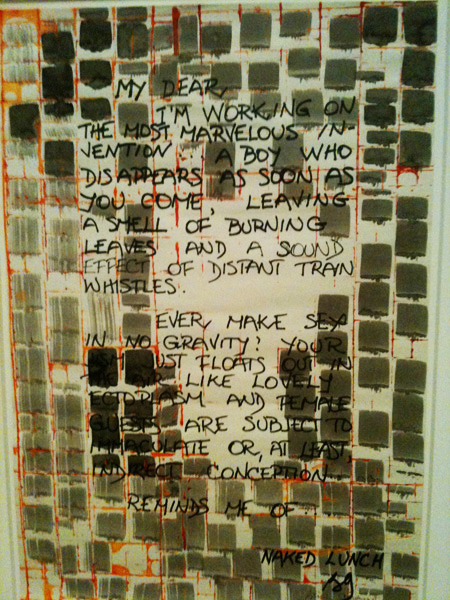 MY DEAR,
I'M WORKING ON
THE MOST MARVELOUS IN-
VENTION... A BOY WHO
DISAPPEARS AS SOON AS
YOU COME, LEAVING
A SMELL OF BURNING
LEAVES AND A SOUND
EFFECT OF DISTANT TRAIN
WHISTLES.
EVER MAKE SEX
IN NO GRAVITY? YOUR
JUST FLOATS OUT IN
THE AIR LIKE LOVELY
ECTOPLASM AND FEMALE
GUESTS ARE SUBJECT TO
IMMACULATE OR, AT LEAST,
INDIRECT CONCEPTION...
REMINDS ME OF...
NAKED LUNCH